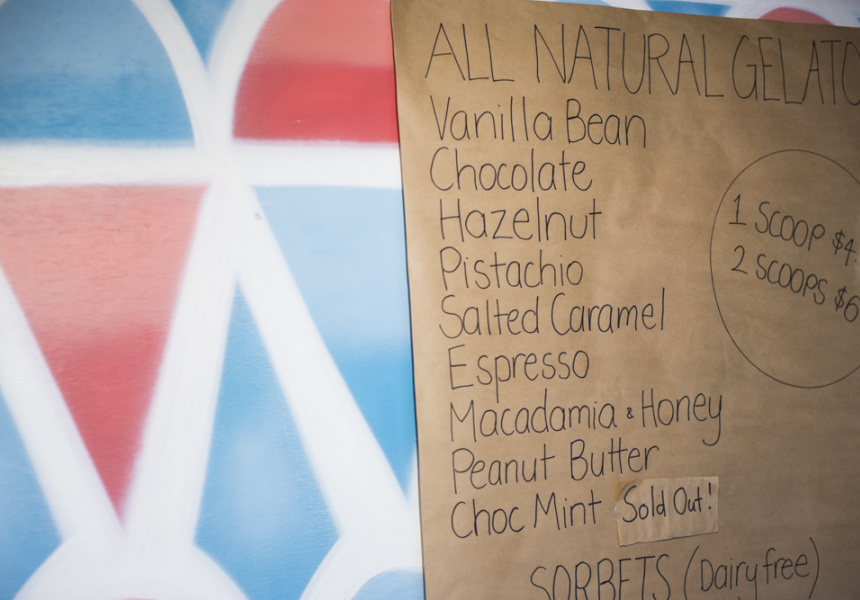 ALL NATURAL GELATO
Vanilla Bean
Chocolate
Hazelnut
1 SCOOP $4
Pistachio
2 SCOOPS $6
Salted Caramel
Espresso
Macadamia & Honey
Peanut Butter
Choc Mint Sold Out!
SORBETS (Dairy free)